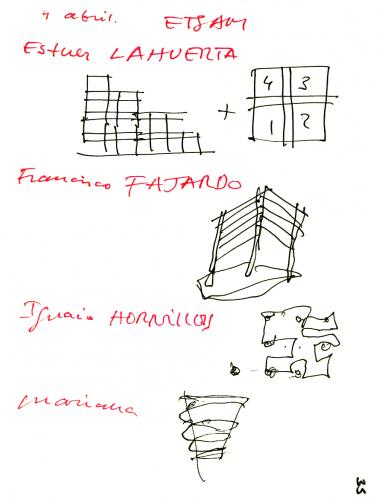 4 abril. ETSAM
Esther LAHUERTA
4 3
1 2
Francisco FAJARDO
Ignacio HORNILLOS
mariana
35